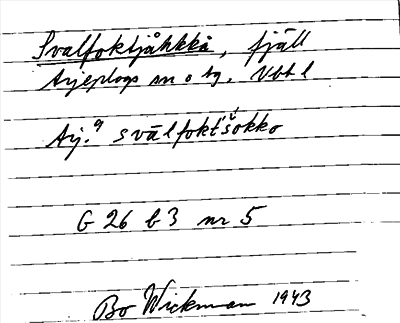 Svalfoktjåhkkå, fjäll
Arjeplogs sn o tg. Vbtl
Arj. a svālfokt'šokko
G 26 b 3 nr 5
Bo Wickman 1943